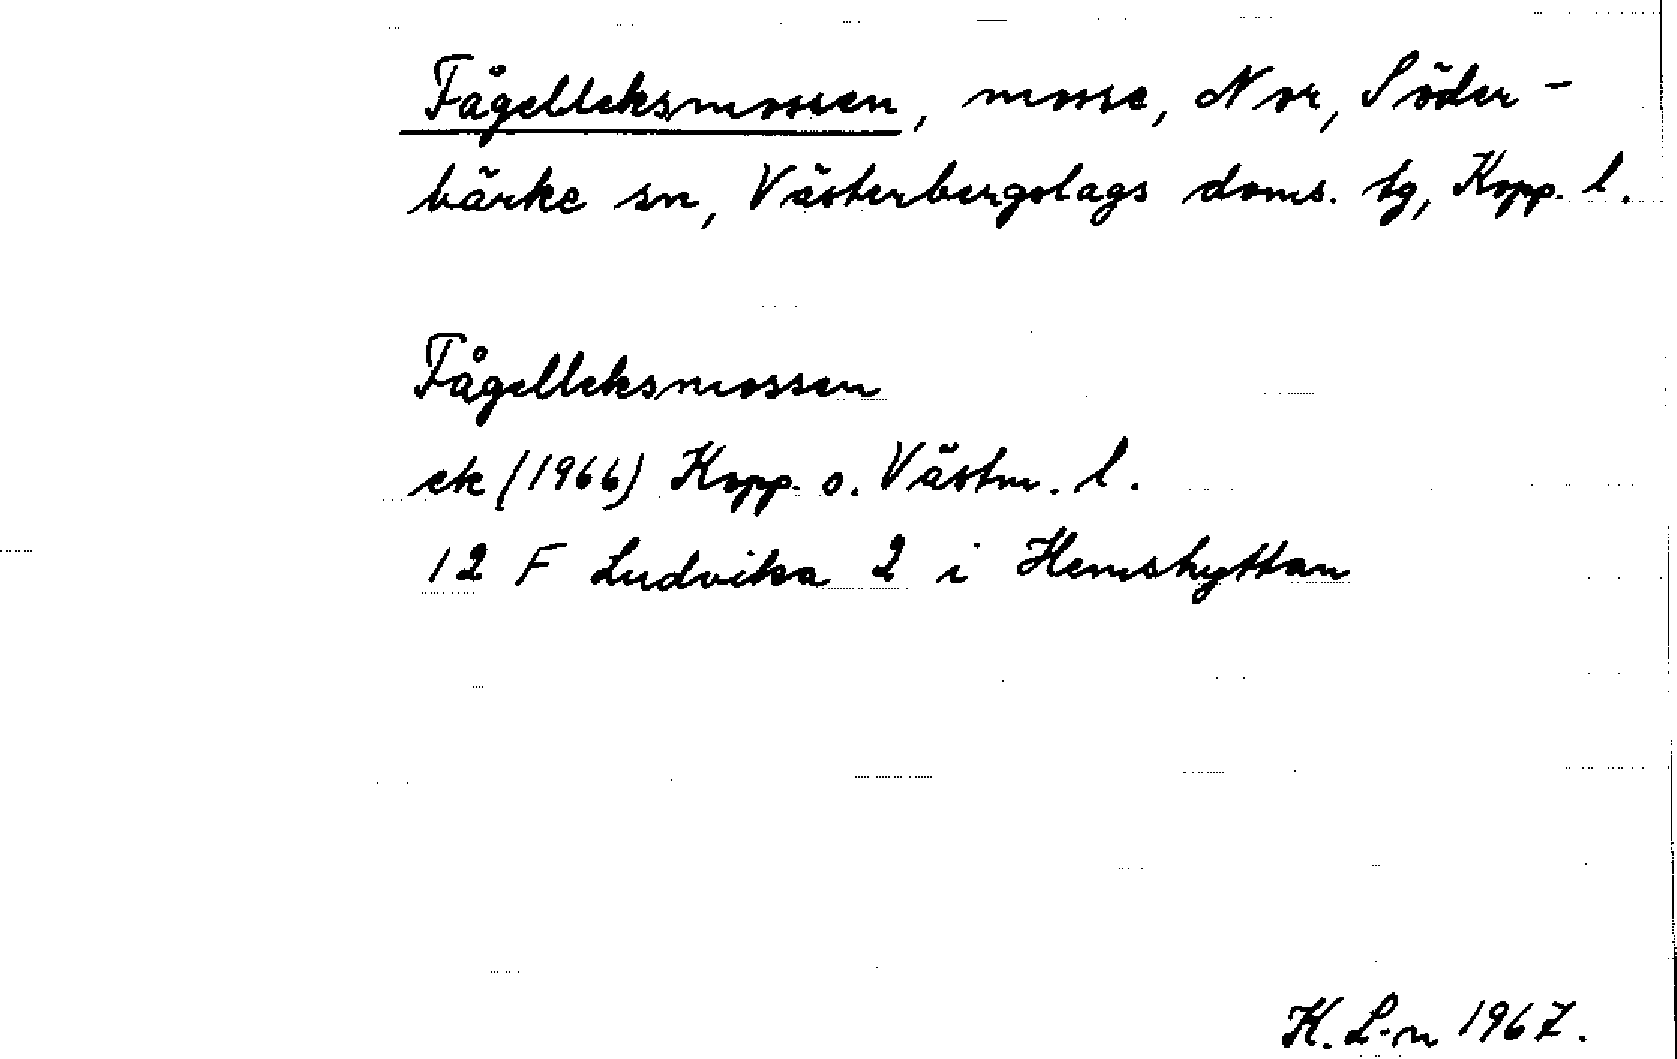 Fågelleksmossen, mosse, Nor, Söder-
bärke sn, Västerbergslags doms. tg, Kopp. l.
Fågelleksmossen
ek (1966) Kopp. o. Västm. l.
12 F Ludvika 2 i Hemshyttan
K. L-n 1967.